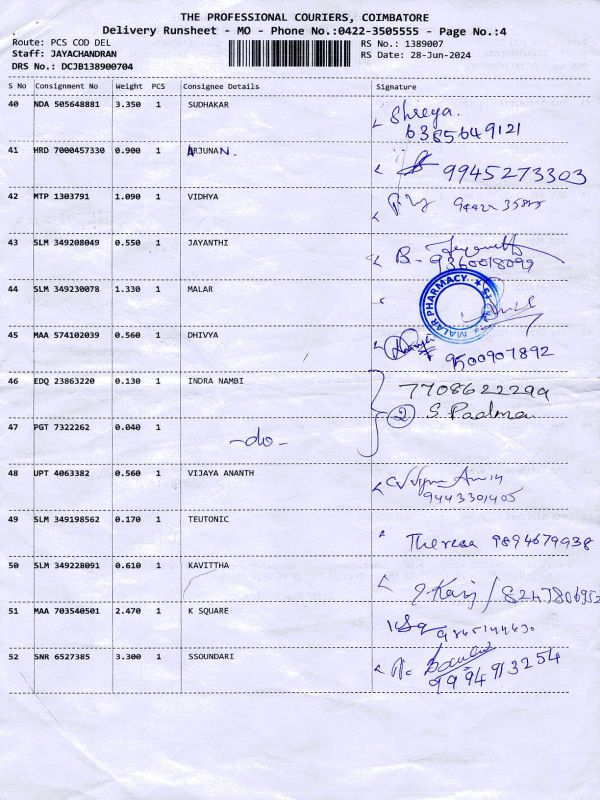 THE PROFESSIONAL COURIERS, COIMBATORE
Delivery Runsheet - MO - Phone No.:0422-3505555 - Page No.:4
Route: PCS COD DEL RS No.: 1389007
Staff: JAYACHANDRAN RS Date: 28-Jun-2024
DRS No.: DCJB138900704
S No Consignment No Weight PCS Consignee Details Signature
40 NDA 505648881 3.350 1 SUDHAKAR Shreya.
6385649121
41 HRD 7000457330 0.900 1 ARJUNAN. 9945273303
42 MTP 1303791 1.090 1 VIDHYA
43 SLM 349208049 0.550 1 JAYANTHI B-
9360018099
44 SLM 349230078 1.330 1 MALAR MALAR PHARMACY
45 MAA 574102039 0.560 1 DHIVYA
9500907892
46 EDQ 23863220 0.130 1 INDRA NAMBI 7708622299
47 PGT 7322262 0.040 1 -do- 2 S Padma
48 UPT 4063382 0.560 1 VIJAYA ANANTH
9443301405
49 SLM 349198562 0.170 1 TEUTONIC Theresa 9894679938
50 SLM 349228091 0.610 1 KAVITTHA
51 MAA 703540501 2.470 1 K SQUARE
52 SNR 6527385 3.300 1 SSOUNDARI
9994913254